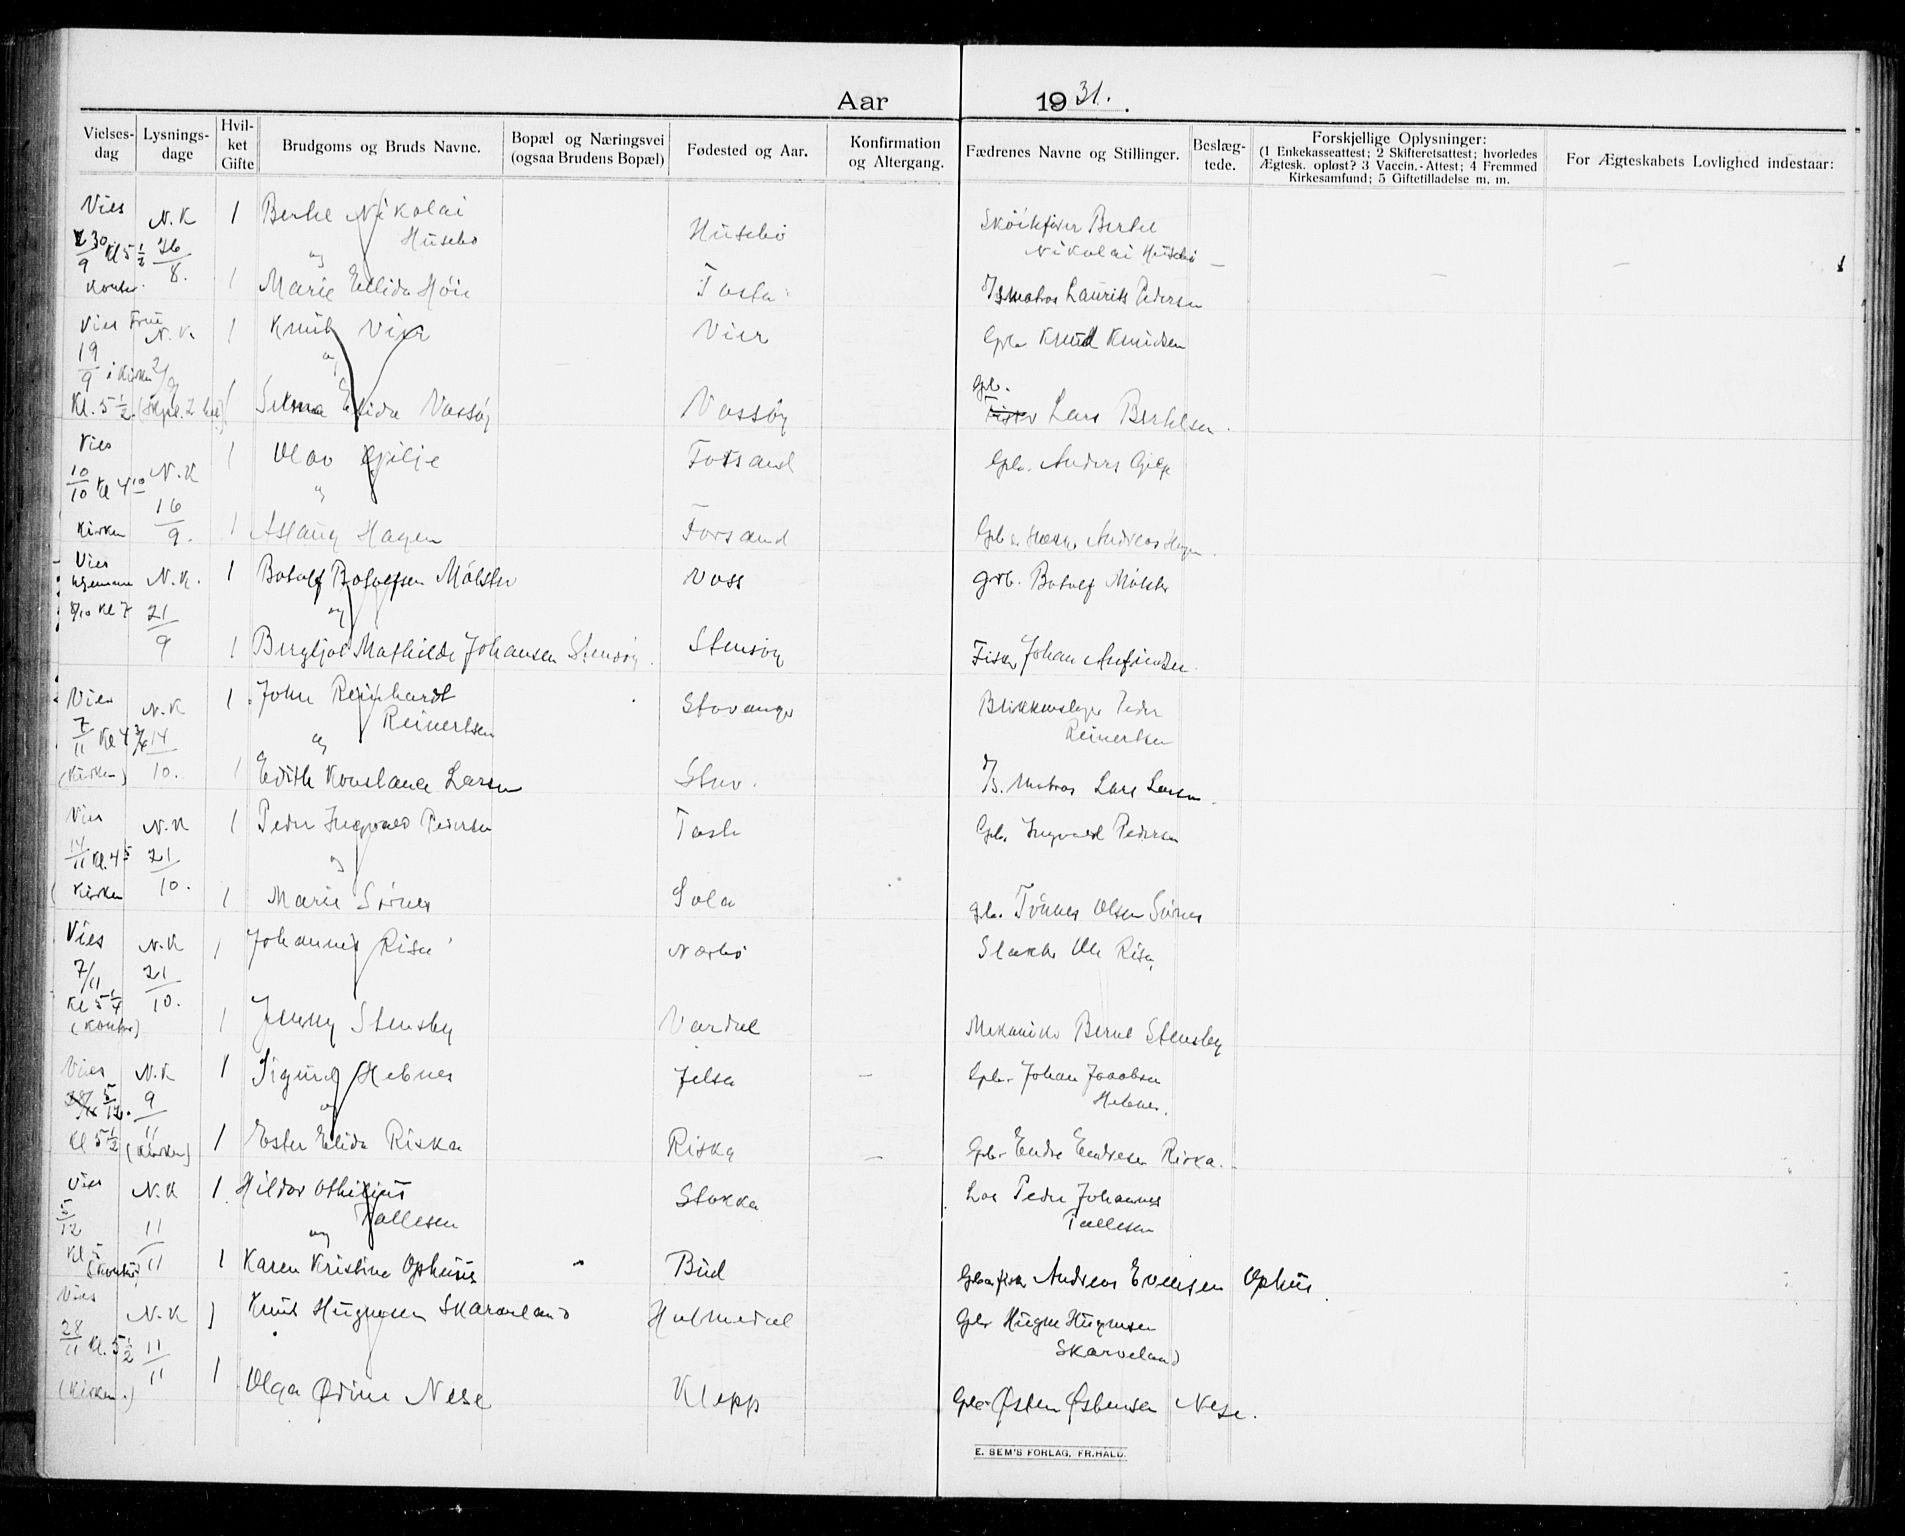 Aar 1931.
Vielses-dag
Lysnings-dage
Hvil-ket Gifte
Brudgoms og Bruds Navne.
Bopæl og Næringsvei (ogsaa Brudens Bopæl)
Fødested og Aar.
Konfirmation og Altergang.
Fædrenes Navne og Stillinger.
Beslæg-tede.
Forskjellige Oplysninger:
(1 Enkekasseattest; 2 Skifteretsattest; hvorledes
Ægtesk. opløst? 3 Vaccin.-Attest; 4 Fremmed
Kirkesamfund; 5 Giftetilladelse m. m.
For Ægteskabets Lovlighed indestaar:
Vies N.K 1 Bertel Nikolai
Husebø Husebø Bertel
30/9 Kl 5 1/2 26/8. og Nikolai Husebø
Kontor. 1 Marie Elida Høie Tasta Matros Laurits Pedersen
Vies N.K 1 Knut Vier Vier Gbr Knud Knudsen
19/9 i Kirken 2/9 og
Kl. 5 1/2 1 Selma Elida Vassøy Vassøy Gbr. Fisker Lars Bertelsen.
Vies N.K 1 Olav Gilje Forsand Gbr. Anders Gilje
10/10 Kl 4 10 og
Kirken 16/9. 1 Aslaug Hagen Forsand Andreas Hagen
Vies hjemme N.K. 1 Botolf Botolfsen Mølster Voss grb. Botolf Mølster
3/10 Kl 7 21/9 og
1 Bergljot Mathilde Johansen Stensøy. Stensøy Fisker Johan
Vies N.K 1 John Reinhardt Stavanger Blikkenslager Peder
Reinertsen Reinertsen
7/11 Kl 4 3/4 14/10. og
(Kirken) 1 Edith Konstance Larsen Stav. Matros Lars Larsen.
Vies N.K 1 Peder Ingvald Pedersen Tasta Gbr. Ingvald Pedersen
14/11 Kl. 4 21/10. og
Kirken 1 Marie Sørnes Sola gbr. Tønnes Olsen Sørnes
Vies N.K 1 Johannes Risa Nærbø Slakter Ole Risa
7/11 21/10.
Kl 5 1/4
(Kontor) 1 Jenny Stensby Vardal Mekaniker Bernt Stensby
Vies N.K 1 Sigurd Hebnes Jelsa Gbr. Johan Jacobsen
Hebnes.
5/12. 9/11 og
Kl 5 1/2 (Kirken) 1 Ester Elida Riska Riska Gbr Endre Endresen Riska.
Vies N.K 1 Hildor Othilius Stokka Los Peder Johannes
Tallesen Tallesen
5/12 11/11 og
Kl 5 (Kontor) 1 Karen Kristine Ophus Bud Gbr fisker Andreas Evensen Ophus.
Vies N.K 1 Knut Hugnesen Skaraland Holmedal Gbr Hugne Hugnesen
Skarveland
28/11 Kl. 5 1/2 11/11
(Kirken.) 1 Olga Ødine Nese Klepp Gbr Østen Østensen Nese.
E. SEM'S FORLAG, FR.HALD.